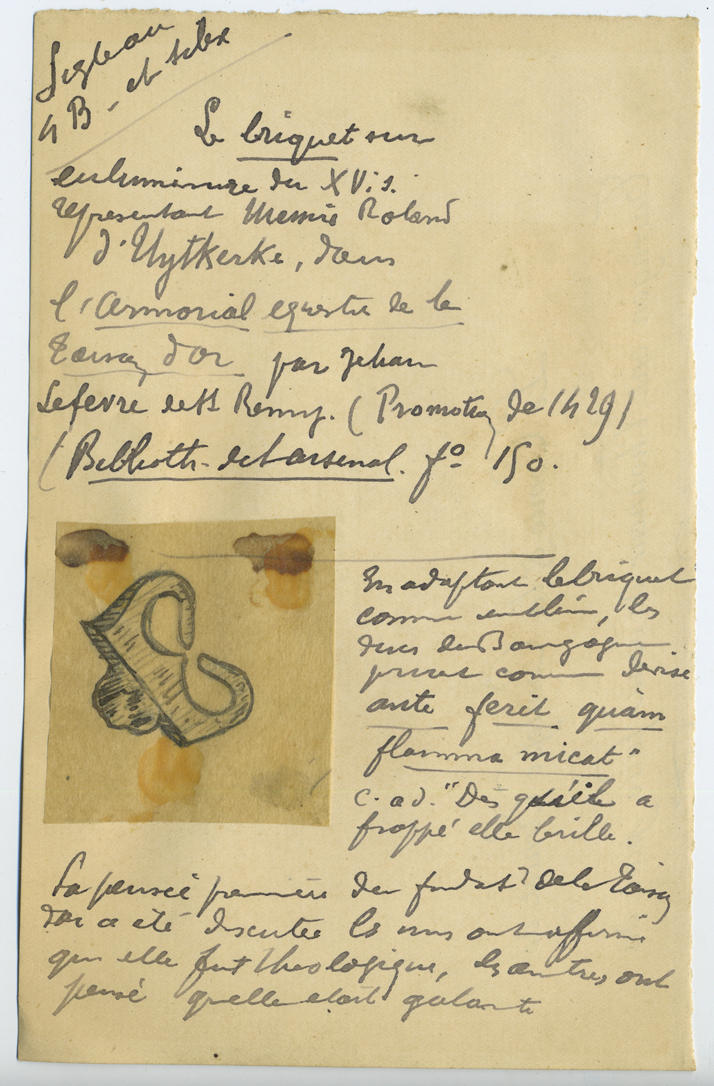 4 B - et silex
Le briquet sur
enluminure du XV i s.
représentant Messire Roland
d'Uytkerke, dans
l'Armorial equestre de la
Toison d'Or par Jehan
Lefevre de St Remy. (Promotion de 1429)
(Biblioth. de l'arsenal. fo 150.
En adoptant le briquet
comme emblème, les
ducs de Bourgogne
prirent comme devise
ante ferit quàm
flamma micat"
c. a d. "Dès qu'elle a
frappé elle brille.
La pensée première du fondatr de la Toison
d'or a été discutée les uns ont affirmé
que elle fut theologique, les autres ont
pensé quelle etait galante